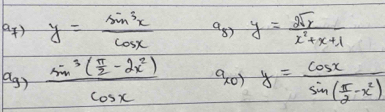 a7) y = sin³x / cosx a8) y = 2√x / x²+x+1
a9) sin³(π/2 - 2x²) / cosx a10) y = cosx / sin(π/2 - x²)